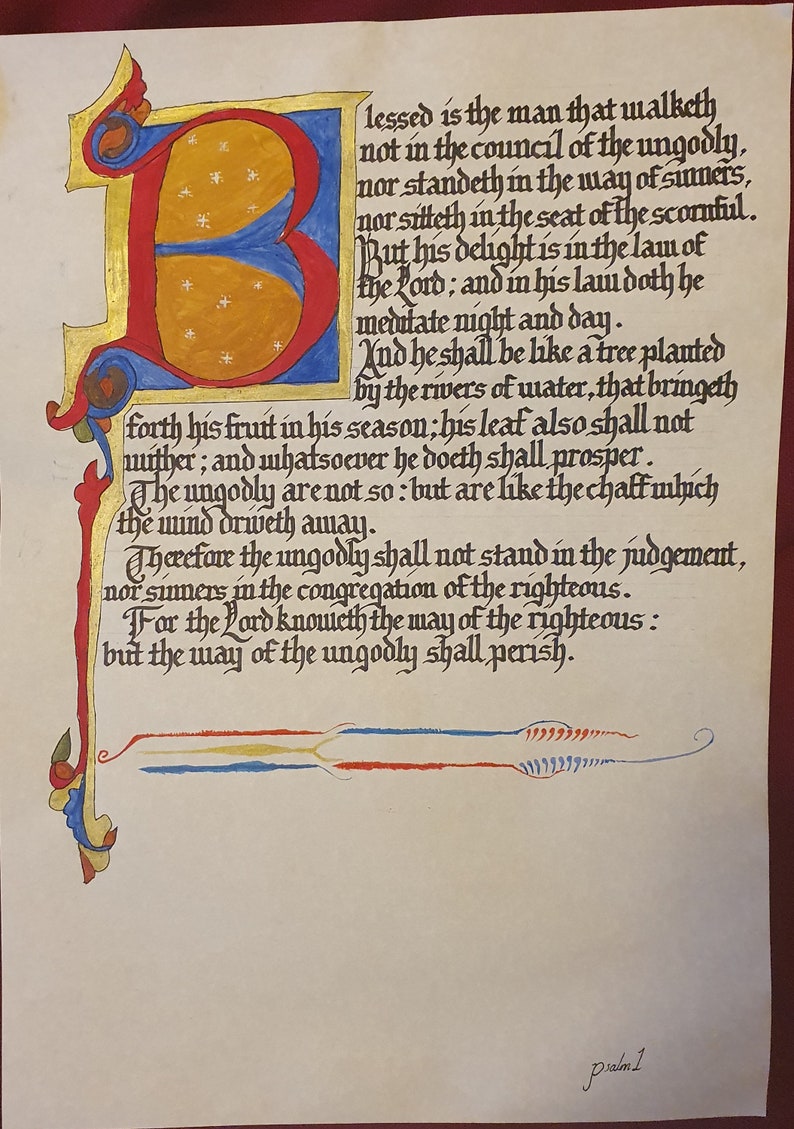 Blessed is the man that walketh
not in the council of the ungodly,
nor standeth in the way of sinners,
nor sitteth in the seat of the scornful.
But his delight is in the law of
the Lord; and in his law doth he
meditate night and day.
And he shall be like a tree planted
by the rivers of water, that bringeth
forth his fruit in his season; his leaf also shall not
wither; and whatsoever he doeth shall prosper.
The ungodly are not so: but are like the chaff which
the wind driveth away.
Therefore the ungodly shall not stand in the judgement,
nor sinners in the congregation of the righteous.
For the Lord knoweth the way of the righteous:
but the way of the ungodly shall perish.
psalm 1